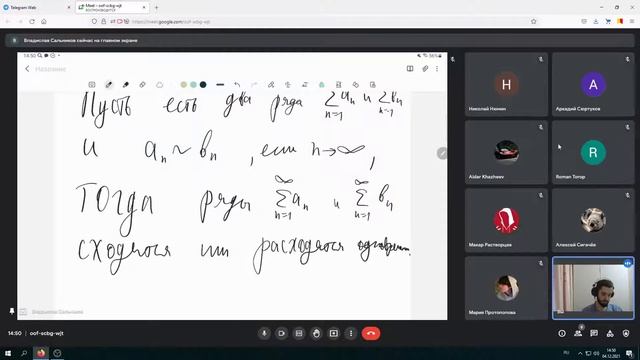 Telegram Web
Meet – oof-scbg-wjt
ВОСПРОИЗВОДИТСЯ
https://meet.google.com/oof-scbg-wjt
Владислав Сальников сейчас на главном экране
14:50
56%
Название
Пусть есть два ряда ∑aₙ и ∑bₙ
n=1 n=1
и aₙ ~ bₙ , если n→∞,
Тогда ряды ∑aₙ и ∑bₙ
∞ ∞
n=1 n=1
сходятся или расходятся
Владислав Сальников
Николай Нюнин
Аркадий Сюртуков
Aidar Khazheev
Roman Torop
Макар Растворцев
Алексей Сигачёв
Мария Протопопова
Вы
H
A
R
14:50 | oof-scbg-wjt
8
RU
14:50
04.12.2021